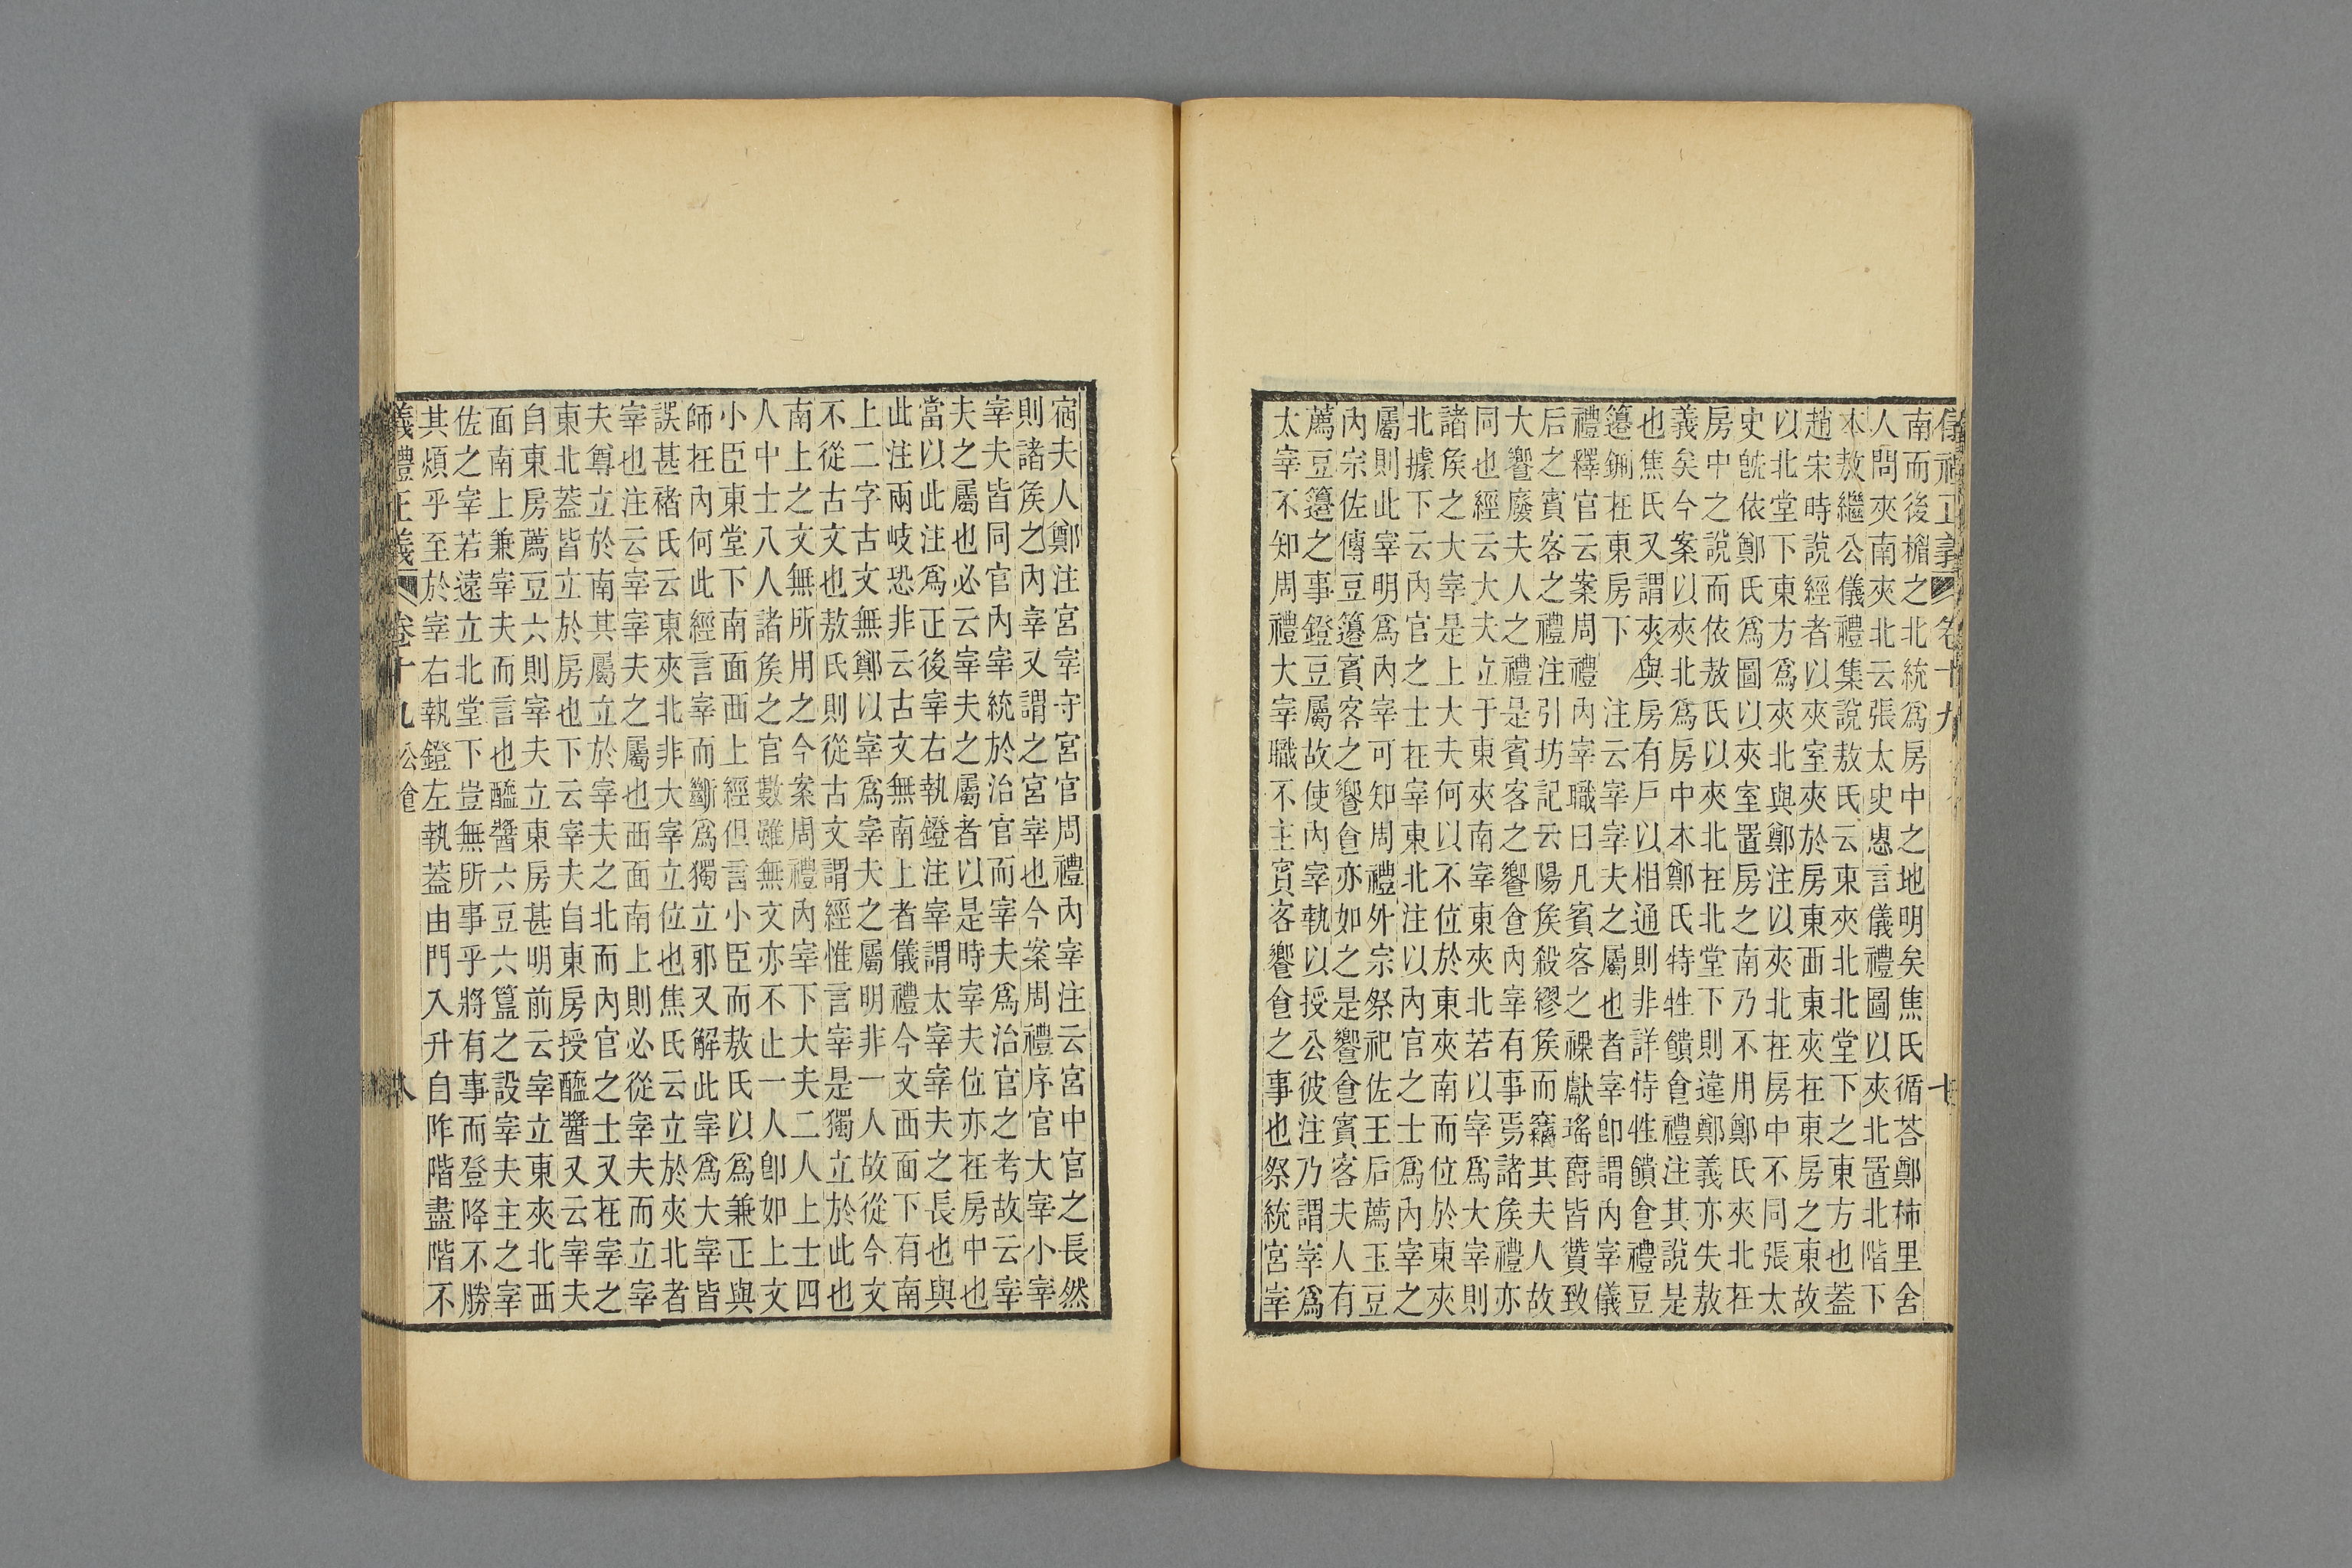 儀禮正義 卷十九 七
南而後檐之北統爲房中之地明矣焦氏循荅鄭柿里舍
人問夾南夾北云張太史惠言儀禮圖以夾北置北階下
本敖繼公儀禮集說敖氏云東夾北北堂下之東方也蓋
趙宋時說經者以夾室夾於房東西東夾在東房之東故
以北堂下東方爲夾北與鄭注以夾北在房中不同張太
史旣依鄭氏爲圖以夾室置房之南乃不用鄭氏夾北在
房中之說而依敖氏以夾北在北堂下則違鄭義亦失敖
義矣今案以夾北爲房中本鄭氏特牲饋食禮注其說是
也焦氏又謂夾與房有戶以相通則非詳特牲饋食禮豆
籩鉶在東房下 注云宰宰夫之屬也者宰卽謂內宰儀
禮釋官云案周禮內宰職曰凡賓客之祼獻瑤爵皆贊致
后之賓客之禮注引坊記云陽矦殺繆矦而竊其夫人故
大饗廢夫人之禮是賓客之饗食內宰有事焉諸矦禮亦
同也經云大夫立于東夾南宰東夾北若以宰爲大宰則
諸矦之大宰是上大夫何以不位於東夾南而位於東夾
北據下云內官之士在宰東北注以內官之士爲內宰之
屬則此宰明爲內宰可知周禮外宗祭祀佐王后薦玉豆
內宗佐傳豆籩賓客之饗食亦如之是饗食賓客夫人有
薦豆籩之事鐙豆屬故使內宰執以授公彼注乃謂宰爲
太宰不知周禮大宰職不主賓客饗食之事也祭統宮宰
宿夫人鄭注宮宰守宮官周禮內宰注云宮中官之長然
則諸矦之內宰又謂之宮宰也今案周禮序官大宰小宰
宰夫皆同官內宰統於治官而宰夫爲治官之考故云宰
夫之屬也必云宰夫之屬者以是時宰夫位亦在房中也
當以此注爲正後宰右執鐙注宰謂太宰宰夫之長也與
此注兩岐恐非云古文無南上者儀禮今文西面下有南
上二字古文無鄭以宰爲宰夫之屬明非一人故從今文
不從古文也敖氏則從古文謂經惟言宰是獨立於此也
南上之文無所用之今案周禮內宰下大夫二人上士四
人中士八人諸矦之官數雖無文亦不止一人卽如上文
小臣東堂下南面西上經但言小臣而敖氏以爲兼正與
師在內何此經言宰而斷爲獨立邪又解此宰爲大宰皆
誤甚褚氏云東夾北非大宰立位也焦氏云立於夾北者
宰也注云宰宰夫之屬也西面南上則必從宰夫而立宰
夫尊立於南其屬立於宰夫之北而內官之士又在宰之
東北蓋皆立於房也下云宰夫自東房授醯醬又云宰夫
自東房薦豆六則宰夫立東房甚明前云宰立東夾北西
面南上兼宰夫而言也醯醬六豆六簋之設宰夫主之宰
佐之宰若遠立北堂下豈無所事乎將有事而登降不勝
其煩乎至於宰右執鐙左執蓋由門入升自阼階盡階不
儀禮正義 卷十九 公食 八